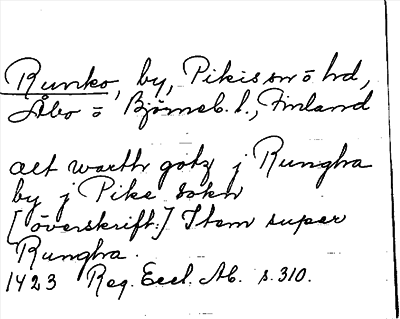 Runko, by, Pikis sn o hd,
Åbo o Björneb. l., Finland
alt warth gotz j Rungha
by j Pike sokn
[överskrift:] Item super
Rungha.
1423 Reg. Eccl. Ab. s. 310.